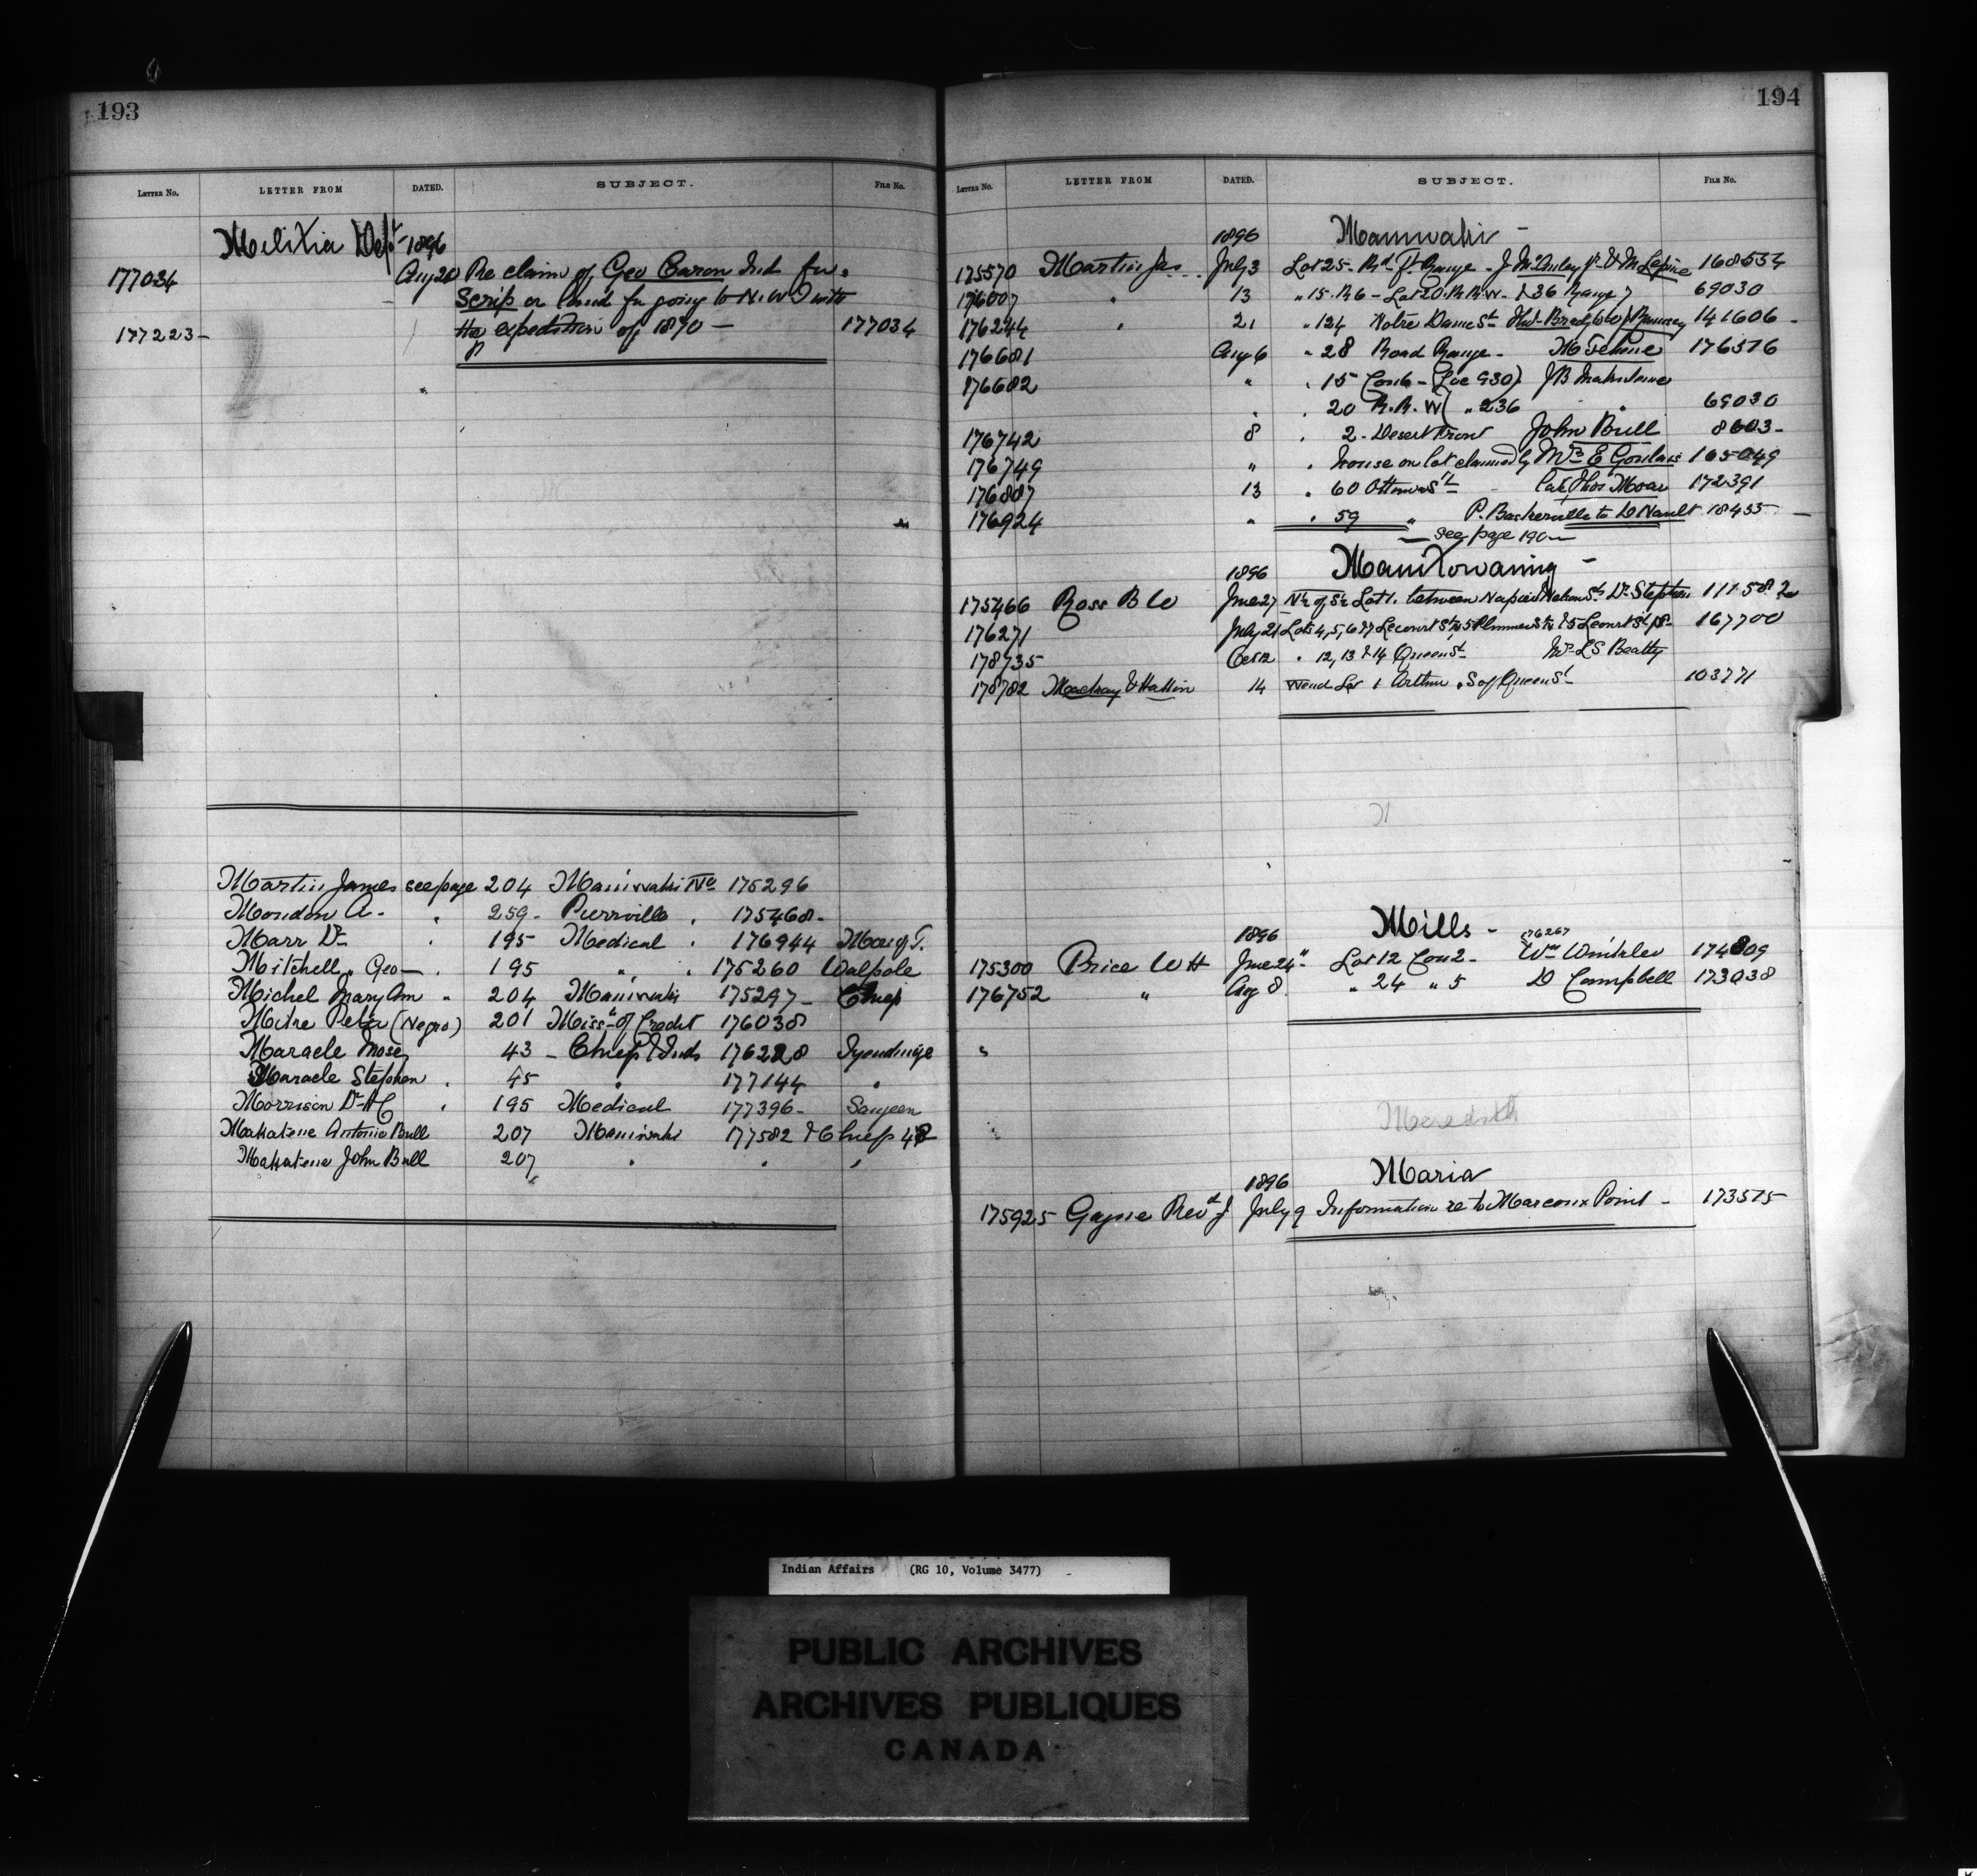 193
LETTER NO. LETTER FROM DATED. SUBJECT. FILE NO.
Militia Dept 1896
177034 Aug 20 Re claim of Geo Caron Ind for
Scrip or land for going to N.W.T with
177223 the expedition of 1870 — 177034
Martin James see page 204 Maniwaki No 175296
Mondon A. " 259 - Pierreville " 175468 -
Marr Dr " 195 Medical " 176944 Mor of T.
Mitchell Geo — " 195 " " 175260 Walpole
Michel Mary Ann " 204 Maniwaki 175297 - Chief
Mitre Peter (Negro) 201 Miss. of Credit 176038
Maracle Mose 43 - Chief & Inds 176228 Tyendinga
Maracle Stephen " 45 " 177144 "
Morrison Dr " 195 Medical 177396 - Saugeen
Makatene Antonie Bull 207 Maniwaki 177582 & Chief 48
Makatene John Bull 207 " " "
194
LETTER NO. LETTER FROM DATED. SUBJECT. FILE NO.
1896 Maniwaki -
175570 Martin Jas July 3 Lot 25 - Rd Ft Range - J McAuley Jr & M Lepine 168534
176007 " 13 " 15 - R 6 - Lot 20 R.R.W. & 36 Range 7 69030
176244 " 21 " 124 Notre Dame St 141606 -
176681 Aug 6 " 28 Road Range - 176576
176682 " " 15 Con 6 - (Loc 930) JB Makatene
" " 20 R.R.W ( " 236 " 69030
176742 8 " 2 - Desert Front John Bull 8603 -
176749 " " house on lot claimed by Mrs E Goulais 165049
176887 13 " 60 Ottawa St late Thos Moar 172391
176924 " " 59 " P. Baskerville to D Nault 18455 -
— see page 190 —
1896 Manitowaning -
175466 Ross B W June 27 N½ of S½ Lot 1. between Napier & Nelson Sts Dr Stephen 111582
176271 July 21 Lots 4, 5, 6 & 7 167700
178735 Oct 12 " 12, 13 & 14 Queen St Mrs L S Beatty
178782 14 W end Lot 1 Arthur " S of Queen St 103771
1896 Mills -
176267
175300 Price W H June 24 " Lot 12 Con 2 - Wm Winkler 174809
176752 " Aug 8 " 24 " 5 D Campbell 173038
Meredith
1896 Maria
175925 Gagne Revd J July 9 Information re to Marcoux Point - 173575
Indian Affairs (RG 10, Volume 3477)
PUBLIC ARCHIVES
ARCHIVES PUBLIQUES
CANADA